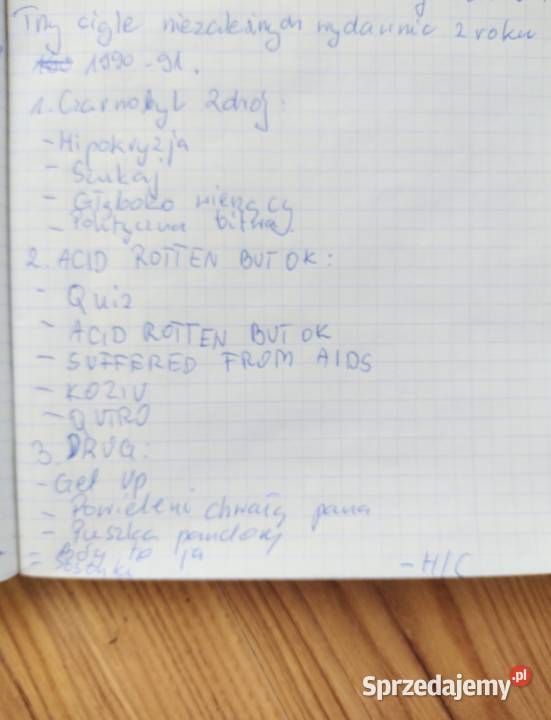 Trzy ciągle niezależnych wydawnic z roku
1990-91.
1. Czarnobyl Zdrój:
- Hipokryzja
- Szukaj
- Głęboko wierzący
- Polityczna bitwa
2. ACID ROTTEN BUT OK:
- Quiz
- ACID ROTTEN BUT OK
- SUFFERED FROM AIDS
- KOZIU
- QUTRO
3. DRUG:
- Get up
- Powieleni chwałą pana
- Puszka pandory
= to ja
- H/C
Sprzedajemy.pl